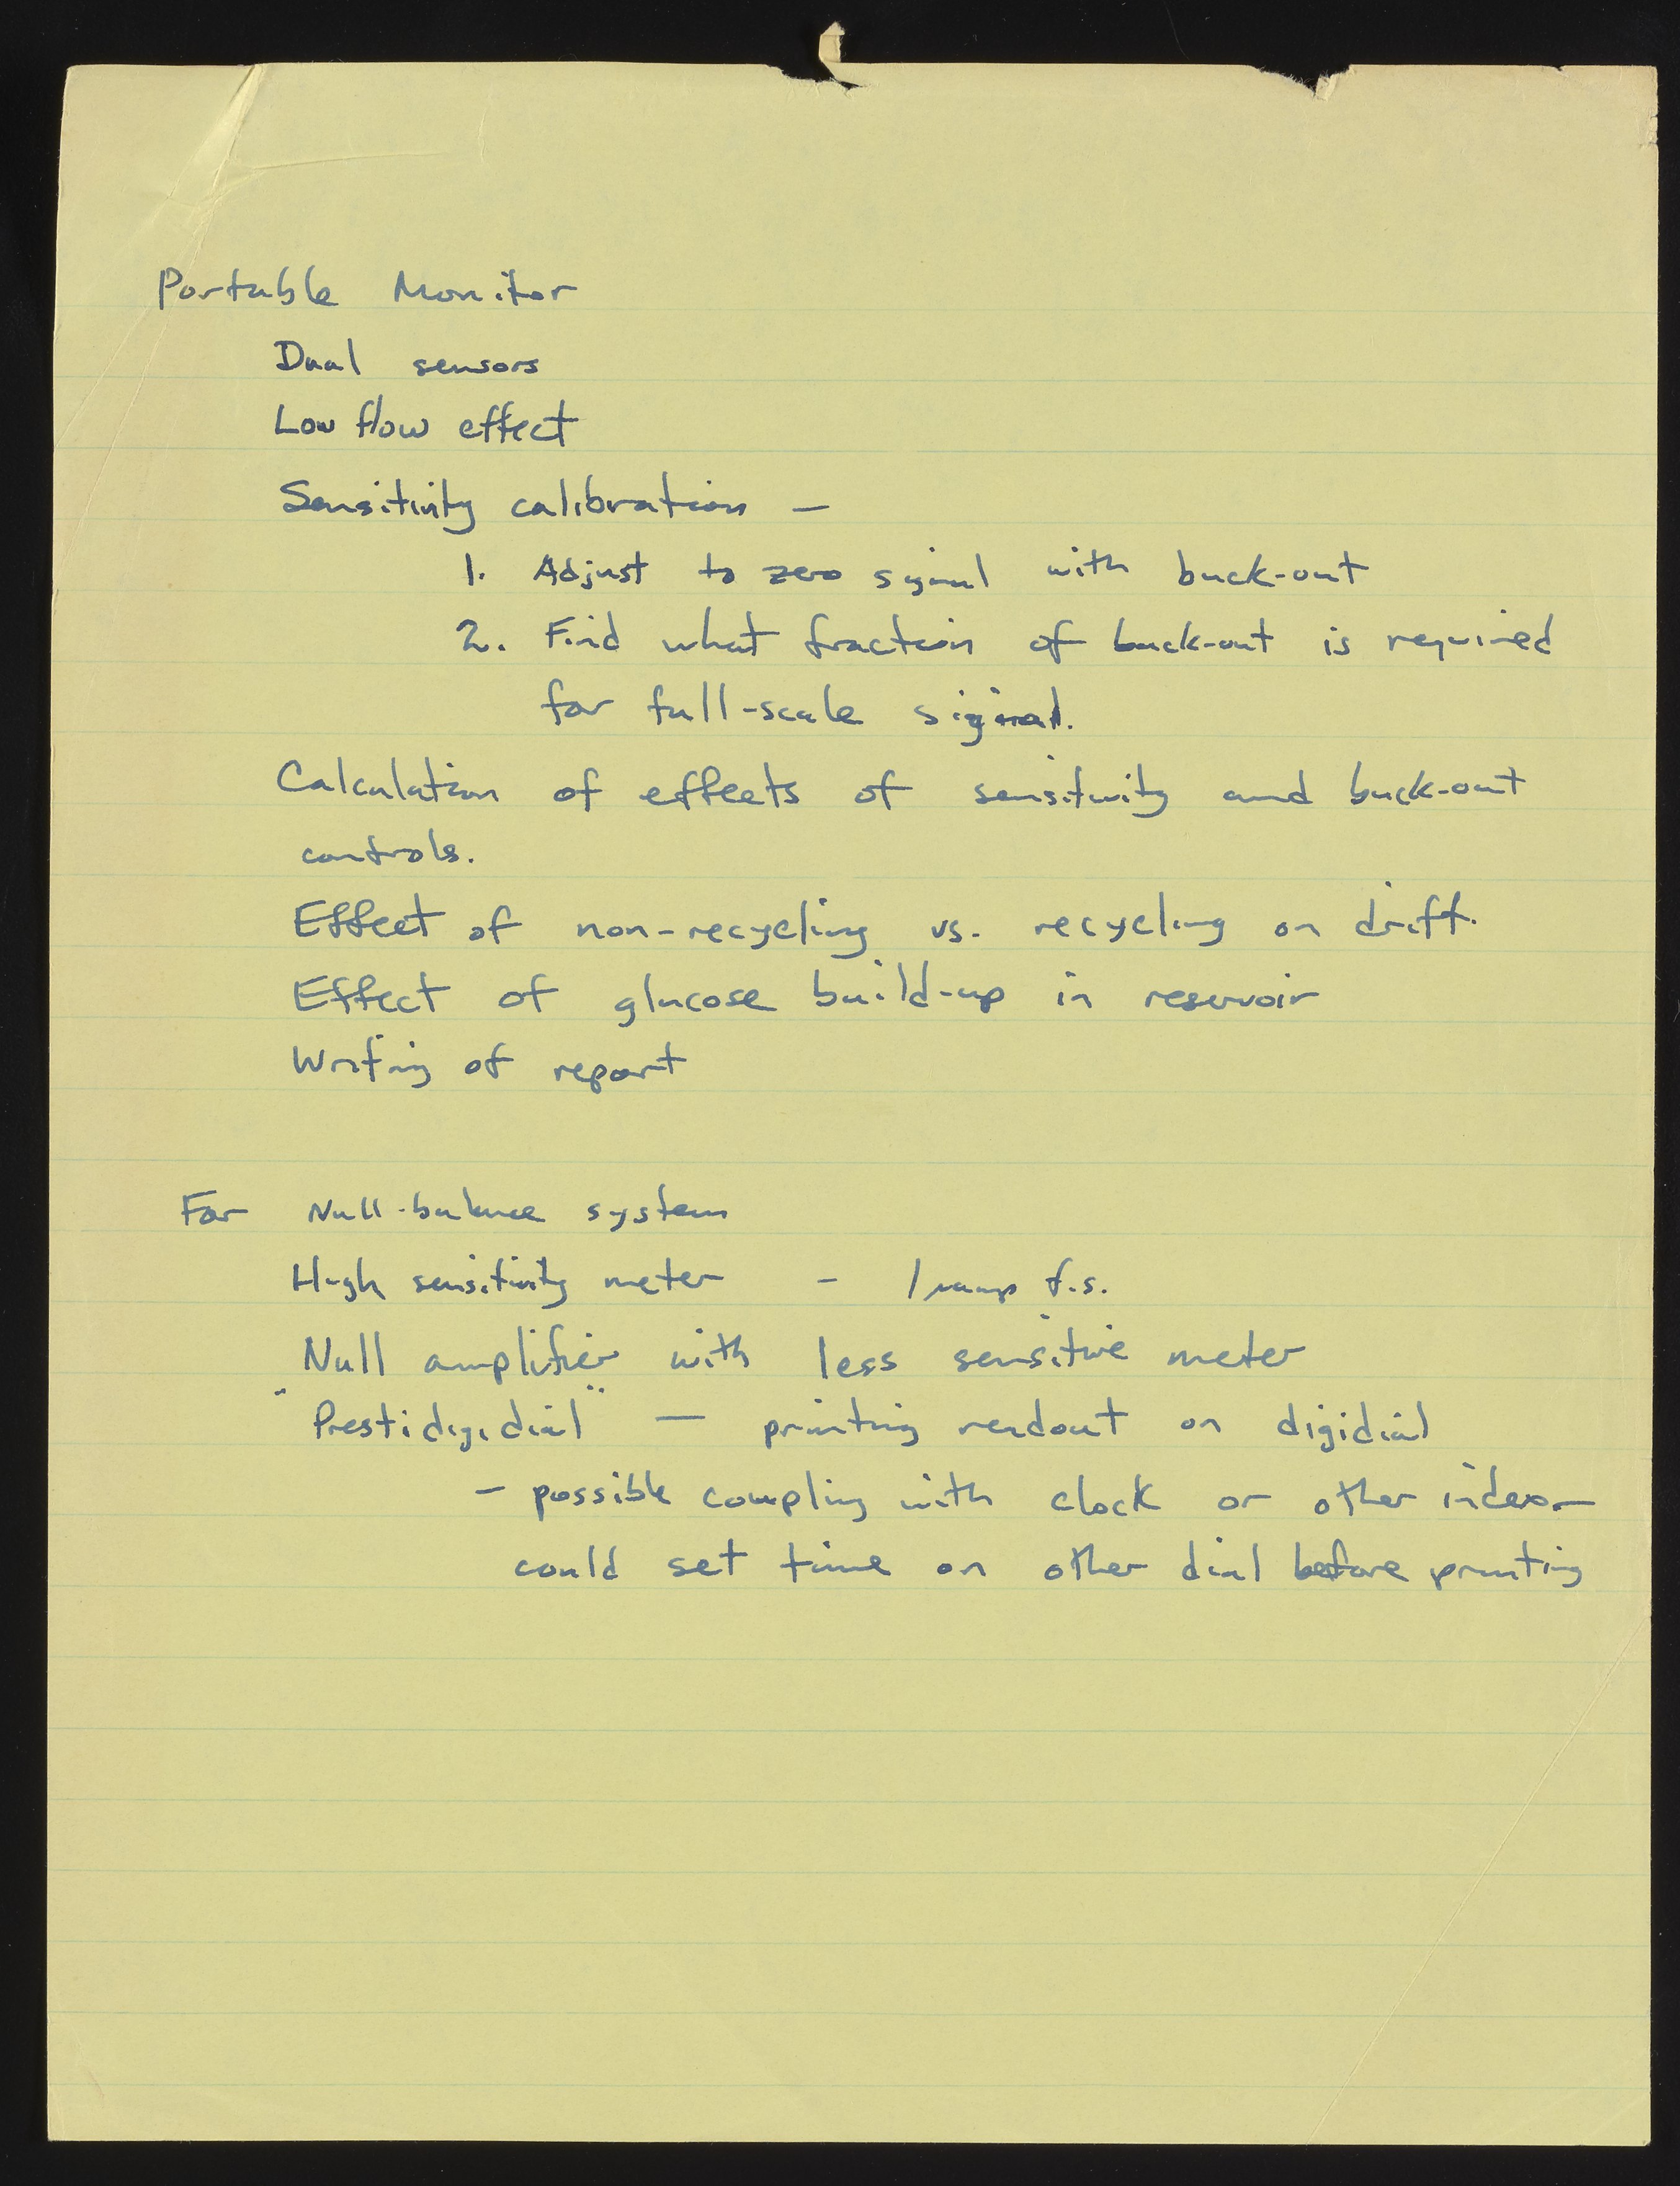 Portable Monitor
Dual sensors
Low flow effect
Sensitivity calibration —
1. Adjust to zero signal with buck-out
2. Find what fraction of buck-out is required
for full-scale signal.
Calculation of effects of sensitivity and buck-out
controls.
Effect of non-recycling vs. recycling on drift.
Effect of glucose build-up in reservoir
Writing of report
For Null-balance system
High sensitivity meter - f.s.
Null amplifier with less sensitive meter
"Prestidigidial" — printing readout on digidial
- possible coupling with clock or other index —
could set time on other dial before printing